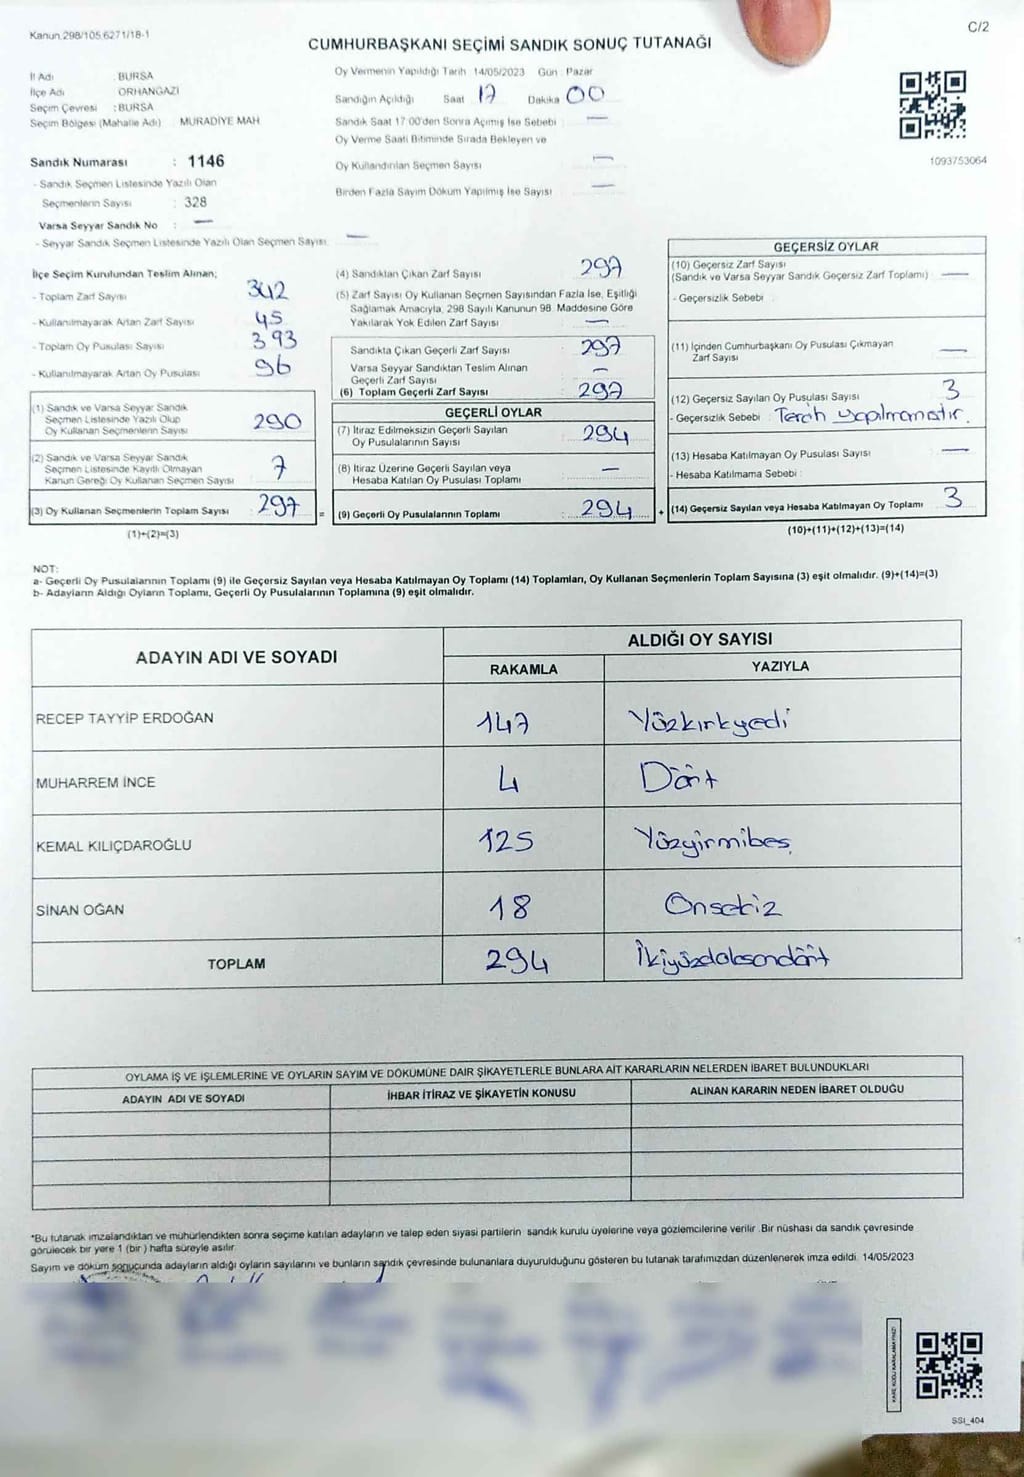 Kanun.298/105.6271/18-1
C/2
CUMHURBAŞKANI SEÇİMİ SANDIK SONUÇ TUTANAĞI
İl Adı : BURSA
İlçe Adı : ORHANGAZİ
Seçim Çevresi : BURSA
Seçim Bölgesi (Mahalle Adı) : MURADİYE MAH
Oy Vermenin Yapıldığı Tarih 14/05/2023 Gün : Pazar
Sandığın Açıldığı Saat 17 Dakika 00
Sandık Saat 17:00'den Sonra Açılmış İse Sebebi : —
Oy Verme Saati Bitiminde Sırada Bekleyen ve
Oy Kullandırılan Seçmen Sayısı —
Birden Fazla Sayım Döküm Yapılmış İse Sayısı —
1093753064
Sandık Numarası : 1146
- Sandık Seçmen Listesinde Yazılı Olan
Seçmenlerin Sayısı : 328
Varsa Seyyar Sandık No : —
- Seyyar Sandık Seçmen Listesinde Yazılı Olan Seçmen Sayısı: —
İlçe Seçim Kurulundan Teslim Alınan;
- Toplam Zarf Sayısı 342
- Kullanılmayarak Artan Zarf Sayısı 45
- Toplam Oy Pusulası Sayısı 393
- Kullanılmayarak Artan Oy Pusulası 96
(1) Sandık ve Varsa Seyyar Sandık
Seçmen Listesinde Yazılı Olup
Oy Kullanan Seçmenlerin Sayısı 290
(2) Sandık ve Varsa Seyyar Sandık
Seçmen Listesinde Kayıtlı Olmayan
Kanun Gereği Oy Kullanan Seçmen Sayısı 7
(3) Oy Kullanan Seçmenlerin Toplam Sayısı 297 =
(1)+(2)=(3)
(4) Sandıktan Çıkan Zarf Sayısı 297
(5) Zarf Sayısı Oy Kullanan Seçmen Sayısından Fazla İse, Eşitliği
Sağlamak Amacıyla, 298 Sayılı Kanunun 98. Maddesine Göre
Yakılarak Yok Edilen Zarf Sayısı —
Sandıkta Çıkan Geçerli Zarf Sayısı 297
Varsa Seyyar Sandıktan Teslim Alınan
Geçerli Zarf Sayısı —
(6) Toplam Geçerli Zarf Sayısı 297
GEÇERLİ OYLAR
(7) İtiraz Edilmeksizin Geçerli Sayılan
Oy Pusulalarının Sayısı 294
(8) İtiraz Üzerine Geçerli Sayılan veya
Hesaba Katılan Oy Pusulası Toplamı —
(9) Geçerli Oy Pusulalarının Toplamı : 294 +
GEÇERSİZ OYLAR
(10) Geçersiz Zarf Sayısı
(Sandık ve Varsa Seyyar Sandık Geçersiz Zarf Toplamı) —
- Geçersizlik Sebebi :
(11) İçinden Cumhurbaşkanı Oy Pusulası Çıkmayan
Zarf Sayısı —
(12) Geçersiz Sayılan Oy Pusulası Sayısı 3
- Geçersizlik Sebebi : Tercih yapılmamıştır.
(13) Hesaba Katılmayan Oy Pusulası Sayısı —
- Hesaba Katılmama Sebebi :
(14) Geçersiz Sayılan veya Hesaba Katılmayan Oy Toplamı 3
(10)+(11)+(12)+(13)=(14)
NOT:
a- Geçerli Oy Pusulalarının Toplamı (9) ile Geçersiz Sayılan veya Hesaba Katılmayan Oy Toplamı (14) Toplamları, Oy Kullanan Seçmenlerin Toplam Sayısına (3) eşit olmalıdır. (9)+(14)=(3)
b- Adayların Aldığı Oyların Toplamı, Geçerli Oy Pusulalarının Toplamına (9) eşit olmalıdır.
ADAYIN ADI VE SOYADI
ALDIĞI OY SAYISI
RAKAMLA YAZIYLA
RECEP TAYYİP ERDOĞAN 147 Yüzkırkyedi
MUHARREM İNCE 4 Dört
KEMAL KILIÇDAROĞLU 125 Yüzyirmibeş
SİNAN OĞAN 18 Onsekiz
TOPLAM 294 İkiyüzdoksandört
OYLAMA İŞ VE İŞLEMLERİNE VE OYLARIN SAYIM VE DÖKÜMÜNE DAİR ŞİKAYETLERLE BUNLARA AİT KARARLARIN NELERDEN İBARET BULUNDUKLARI
ADAYIN ADI VE SOYADI İHBAR İTİRAZ VE ŞİKAYETİN KONUSU ALINAN KARARIN NEDEN İBARET OLDUĞU
*Bu tutanak imzalandıktan ve mühürlendikten sonra seçime katılan adayların ve talep eden siyasi partilerin sandık kurulu üyelerine veya gözlemcilerine verilir. Bir nüshası da sandık çevresinde
görülecek bir yere 1 (bir) hafta süreyle asılır.
Sayım ve döküm sonucunda adayların aldığı oyların sayılarını ve bunların sandık çevresinde bulunanlara duyurulduğunu gösteren bu tutanak tarafımızdan düzenlenerek imza edildi. 14/05/2023
KARE KODU KARALAMAYINIZ!
SSI_404